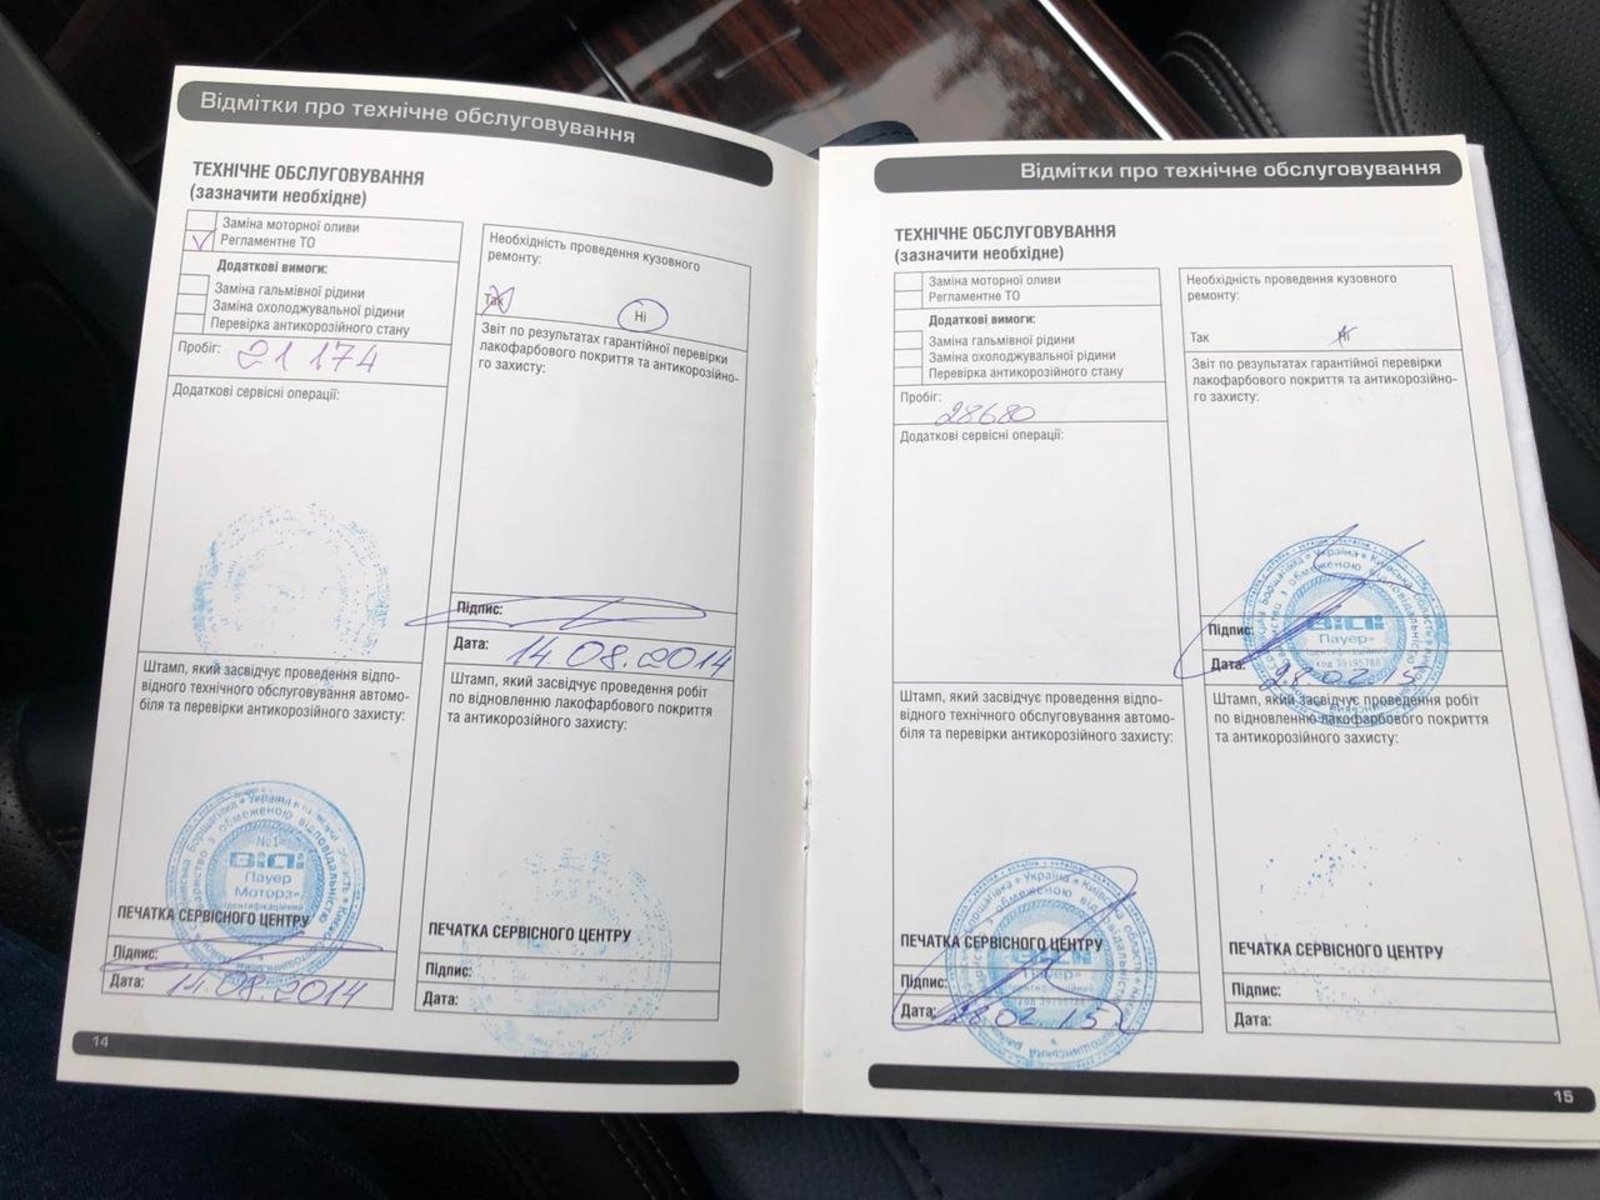 Відмітки про технічне обслуговування
ТЕХНІЧНЕ ОБСЛУГОВУВАННЯ
(зазначити необхідне)
Заміна моторної оливи
Регламентне ТО
Додаткові вимоги:
Заміна гальмівної рідини
Заміна охолоджувальної рідини
Перевірка антикорозійного стану
Пробіг: 21 174
Додаткові сервісні операції:
Штамп, який засвідчує проведення відпо-
відного технічного обслуговування автомо-
біля та перевірки антикорозійного захисту:
№1
ВіДі
Пауер
Моторз»
ПЕЧАТКА СЕРВІСНОГО ЦЕНТРУ
Підпис:
Дата: 14.08.2014
Необхідність проведення кузовного
ремонту:
Так Ні
Звіт по результатах гарантійної перевірки
лакофарбового покриття та антикорозійно-
го захисту:
Підпис:
Дата: 14.08.2014
Штамп, який засвідчує проведення робіт
по відновленню лакофарбового покриття
та антикорозійного захисту:
ПЕЧАТКА СЕРВІСНОГО ЦЕНТРУ
Підпис:
Дата:
14
Відмітки про технічне обслуговування
ТЕХНІЧНЕ ОБСЛУГОВУВАННЯ
(зазначити необхідне)
Заміна моторної оливи
Регламентне ТО
Додаткові вимоги:
Заміна гальмівної рідини
Заміна охолоджувальної рідини
Перевірка антикорозійного стану
Пробіг: 28680
Додаткові сервісні операції:
Штамп, який засвідчує проведення відпо-
відного технічного обслуговування автомо-
біля та перевірки антикорозійного захисту:
ПЕЧАТКА СЕРВІСНОГО ЦЕНТРУ
Підпис:
Дата: 28.02.15
Необхідність проведення кузовного
ремонту:
Так Ні
Звіт по результатах гарантійної перевірки
лакофарбового покриття та антикорозійно-
го захисту:
ВіДі
Пауер»
Ідентифікаційний
код 39195788
Підпис:
Дата: 28.02.15
Штамп, який засвідчує проведення робіт
по відновленню лакофарбового покриття
та антикорозійного захисту:
ПЕЧАТКА СЕРВІСНОГО ЦЕНТРУ
Підпис:
Дата:
15